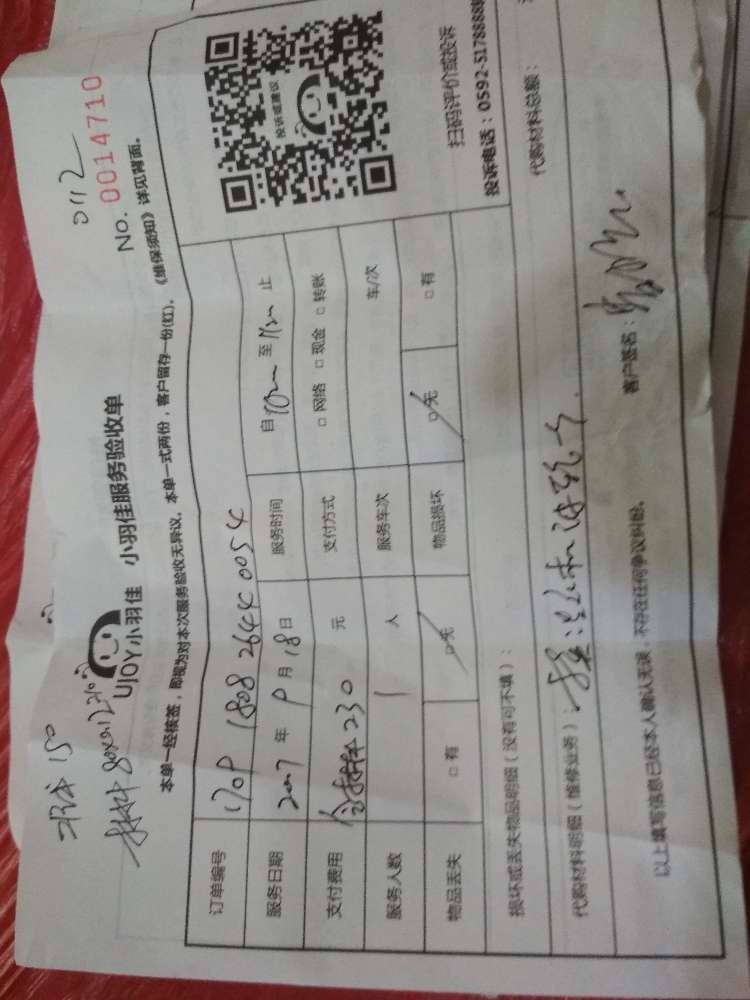 0112
No. 0014710
UJOY小羽佳 小羽佳服务验收单
本单一经核签，即视为对本次服务验收无异议。本单一式两份，客户留存一份(红)。《维保须知》详见背面。
订单编号 1709 1808 2644 0054
服务日期 2017 年 9 月 18 日 服务时间 自 至 止
支付费用 含材料230 元 支付方式 □ 网络 □ 现金 □ 转账
服务人数 1 人 服务车次 车/次
物品丢失 □ 有 □ 无 物品损坏 □ 无 □ 有
投诉或建议
扫码评价或投诉
投诉电话：0592-5178888
损坏或丢失物品明细（没有可不填）：
代购材料明细（维修业务）：
代购材料总额：
以上填写信息已经本人确认无误，不存在任何争议纠纷。
客户签名：